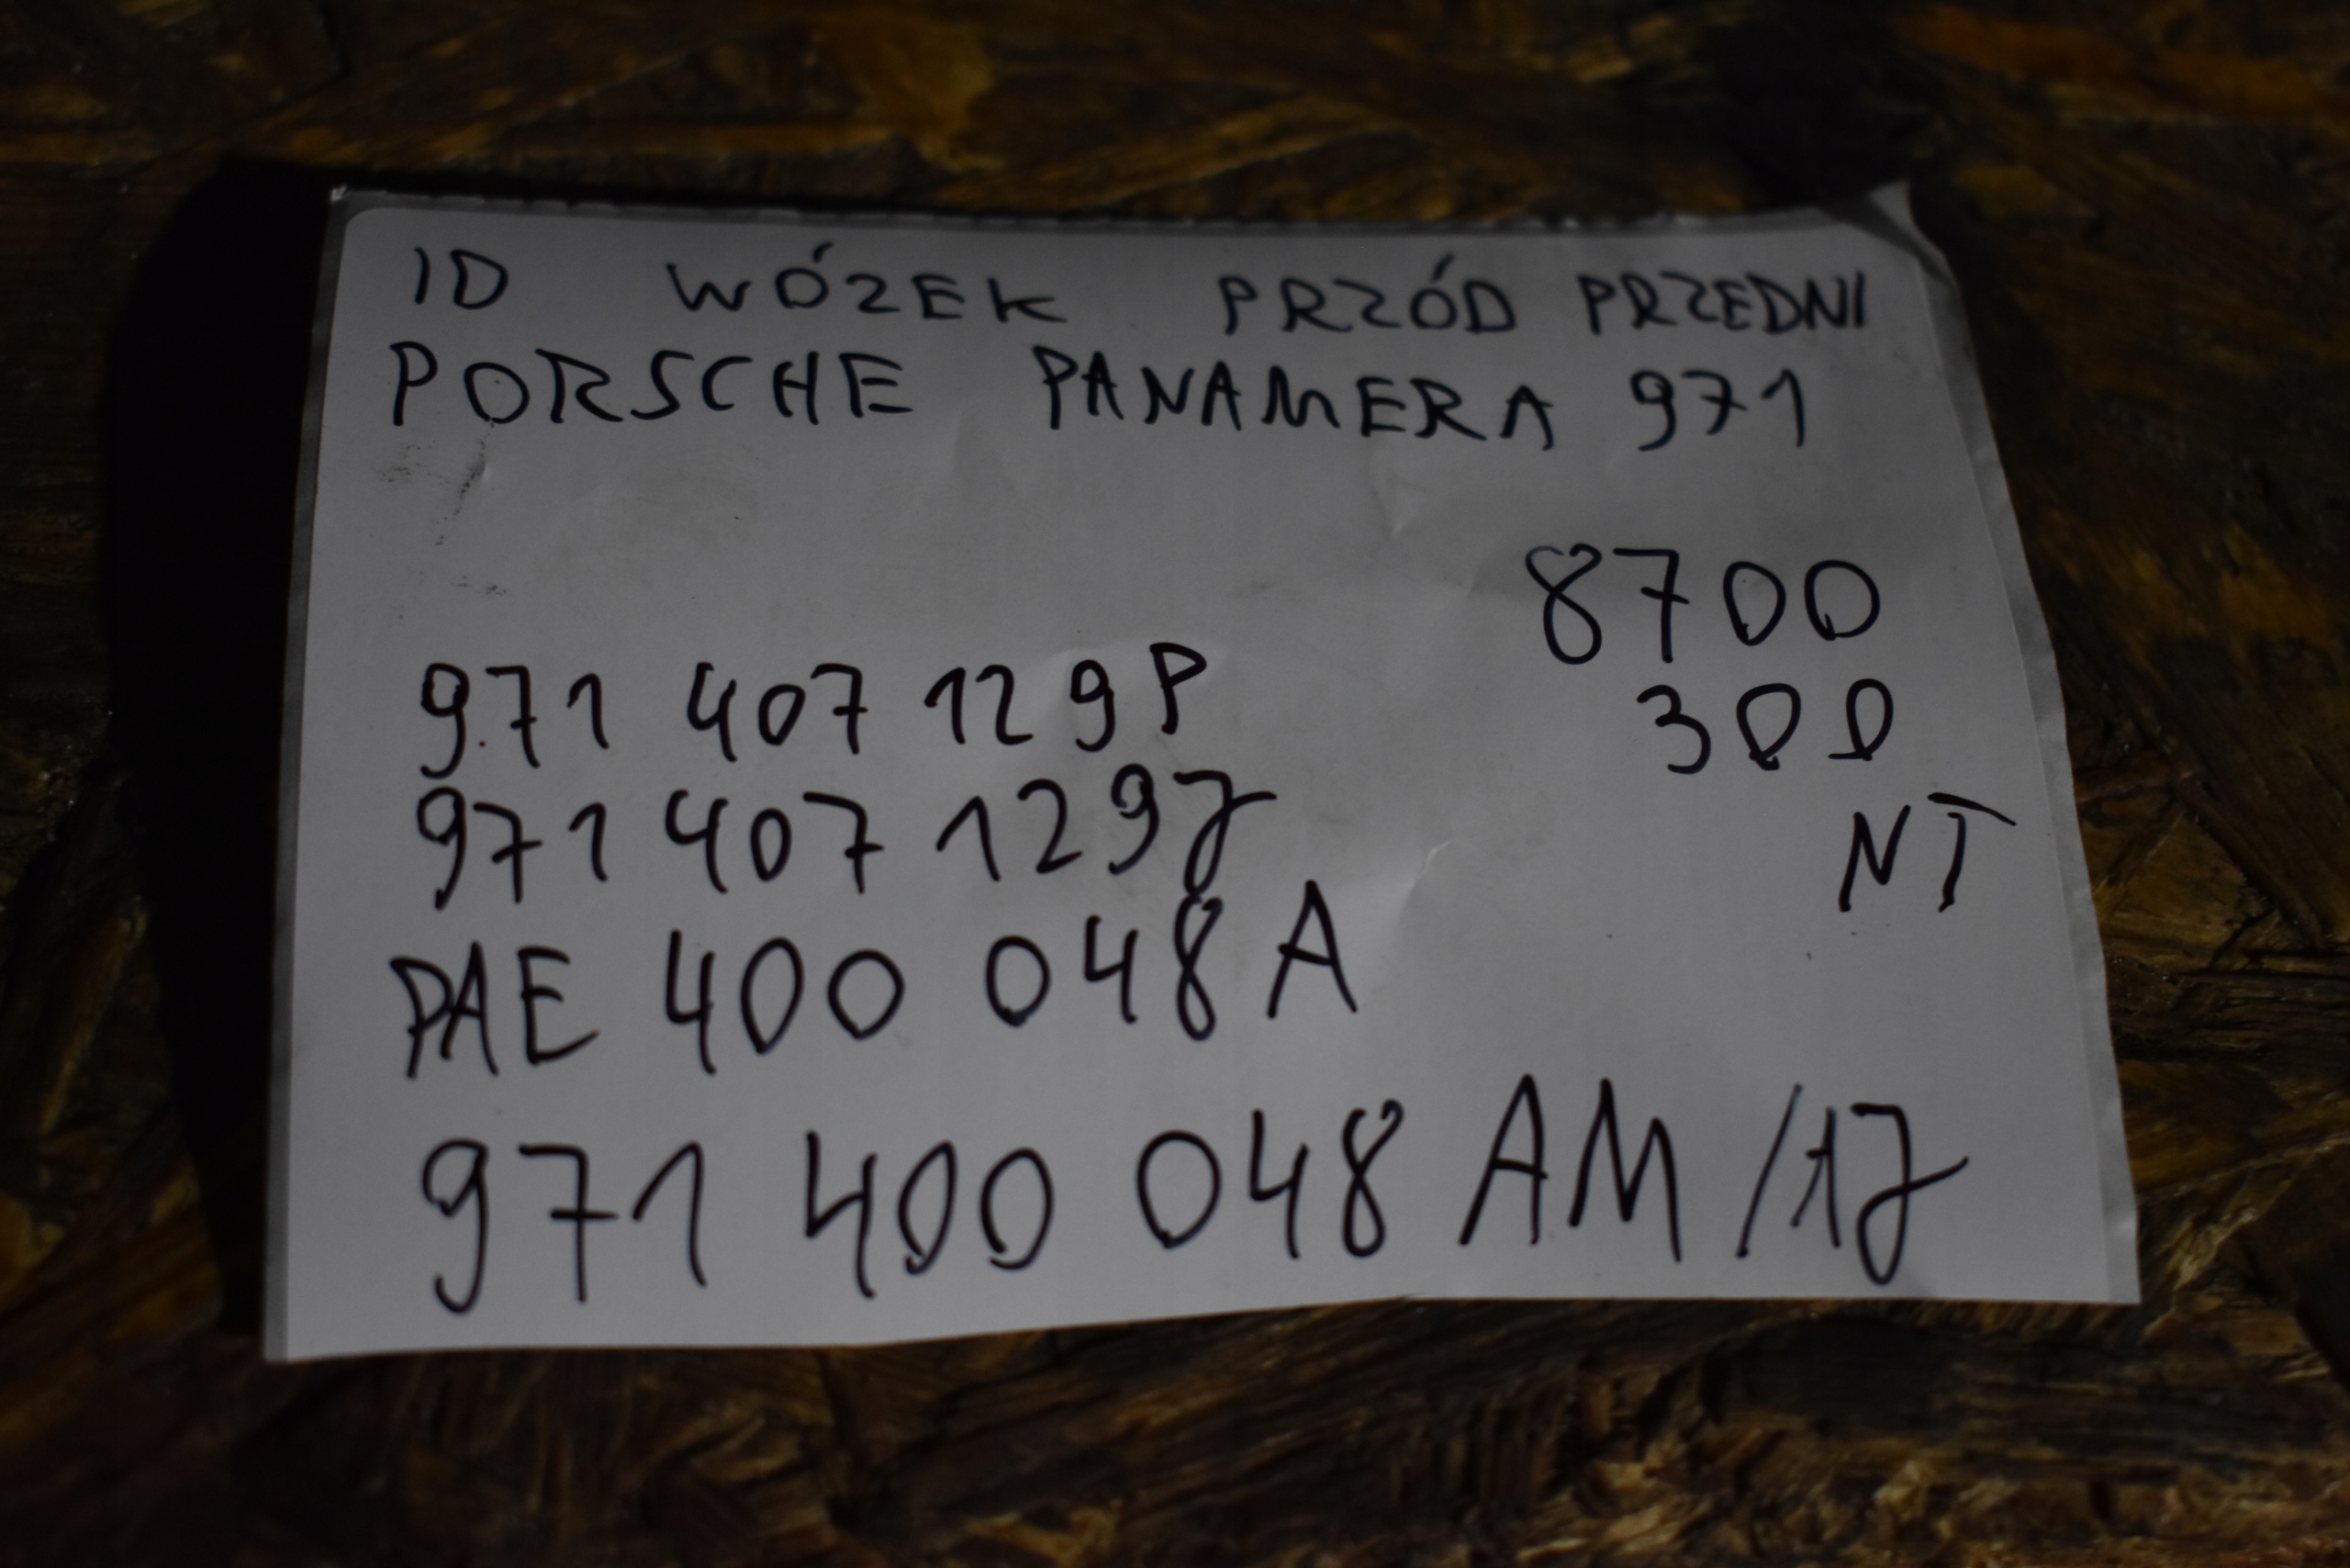 ID WÓZEK PRZÓD PRZEDNI
PORSCHE PANAMERA 971
8700
971 407 129P
300
971 407 129J
NT
PAE 400 048 A
971 400 048 AM /1J